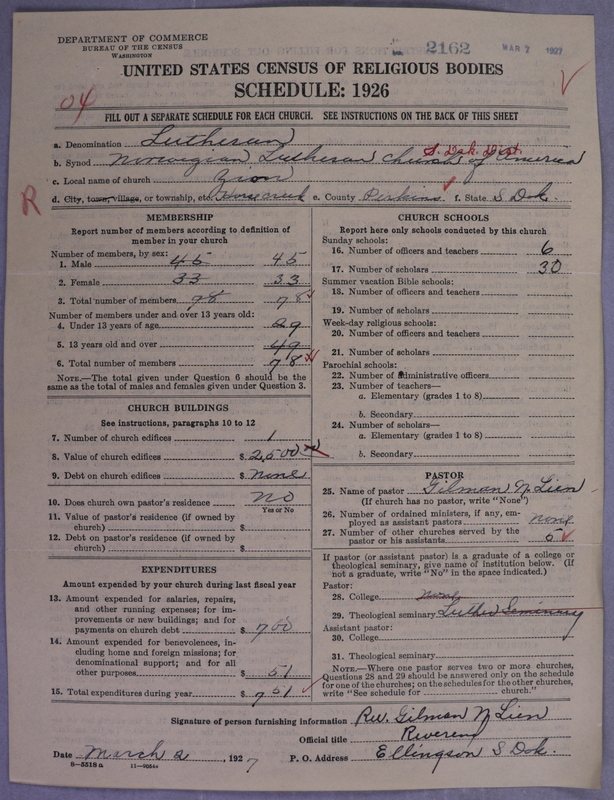 DEPARTMENT OF COMMERCE
BUREAU OF THE CENSUS
WASHINGTON
2162
MAR 2 1927
UNITED STATES CENSUS OF RELIGIOUS BODIES
SCHEDULE: 1926
04
FILL OUT A SEPARATE SCHEDULE FOR EACH CHURCH. SEE INSTRUCTIONS ON THE BACK OF THIS SHEET
a. Denomination Lutheran
S. Dak. Dist.
b. Synod Norwegian Lutheran church of America
c. Local name of church Zion
R
d. City, town, village, or township, etc. Horse creek e. County Perkins f. State S Dak.
MEMBERSHIP
Report number of members according to definition of
member in your church
Number of members, by sex:
1. Male 45 45
2. Female 33 33
3. Total number of members 78 78
Number of members under and over 13 years old:
4. Under 13 years of age 29
5. 13 years old and over 49
6. Total number of members 78
NOTE.—The total given under Question 6 should be the
same as the total of males and females given under Question 3.
CHURCH BUILDINGS
See instructions, paragraphs 10 to 12
7. Number of church edifices 1
8. Value of church edifices $ 2,500
9. Debt on church edifices $ none
10. Does church own pastor's residence No
Yes or No
11. Value of pastor's residence (if owned by
church) $
12. Debt on pastor's residence (if owned by
church) $
EXPENDITURES
Amount expended by your church during last fiscal year
13. Amount expended for salaries, repairs,
and other running expenses; for im-
provements or new buildings; and for
payments on church debt $ 700
14. Amount expended for benevolences, in-
cluding home and foreign missions; for
denominational support; and for all
other purposes $ 51
15. Total expenditures during year $ 751
CHURCH SCHOOLS
Report here only schools conducted by this church
Sunday schools:
16. Number of officers and teachers 6
17. Number of scholars 30
Summer vacation Bible schools:
18. Number of officers and teachers
19. Number of scholars
Week-day religious schools:
20. Number of officers and teachers
21. Number of scholars
Parochial schools:
22. Number of administrative officers
23. Number of teachers—
a. Elementary (grades 1 to 8)
b. Secondary
24. Number of scholars—
a. Elementary (grades 1 to 8)
b. Secondary
PASTOR
25. Name of pastor Gilman N Lien
(If church has no pastor, write "None")
26. Number of ordained ministers, if any, em-
ployed as assistant pastors none
27. Number of other churches served by the
pastor or his assistants 5
If pastor (or assistant pastor) is a graduate of a college or
theological seminary, give name of institution below. (If
not a graduate, write "No" in the space indicated.)
Pastor:
28. College
29. Theological seminary Luther Seminary
Assistant pastor:
30. College
31. Theological seminary
NOTE.—Where one pastor serves two or more churches,
Questions 28 and 29 should be answered only on the schedule
for one of the churches; on the schedules for the other churches,
write "See schedule for church."
Signature of person furnishing information Rev. Gilman N Lien
Official title Reverend
Date March 2, 1927 P. O. Address Ellingson S Dak.
8—5518 a 11—9054